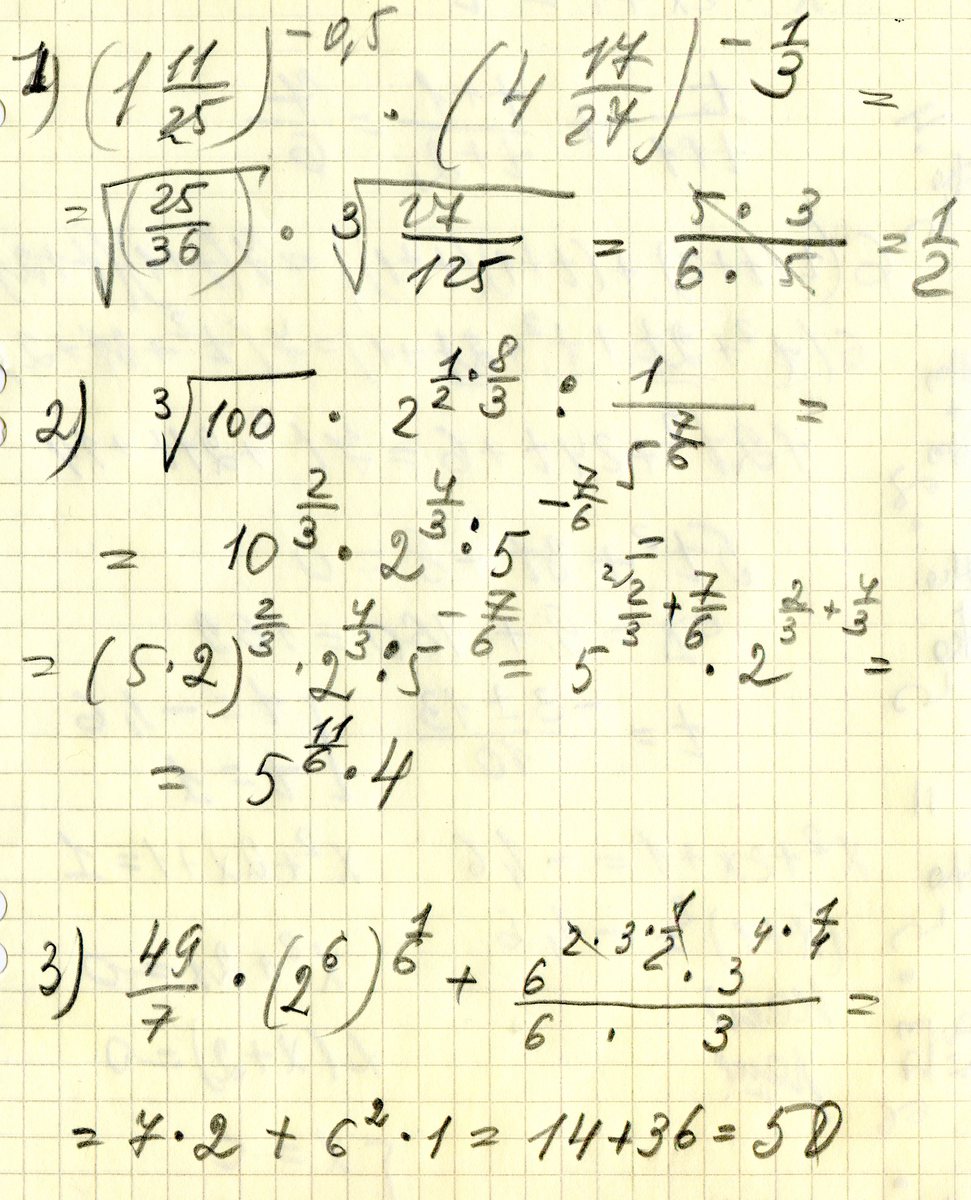 1) (1 11/25)^(-0,5) · (4 17/27)^(-1/3) =
= √(25/36) · ³√(27/125) = (5 · 3)/(6 · 5) = 1/2
2) ³√100 · 2^(1/2 · 8/3) : 1/5^(7/6) =
= 10^(2/3) · 2^(4/3) : 5^(-7/6) =
= (5·2)^(2/3) · 2^(4/3) : 5^(-7/6) = 5^(2) 2/3 + 7/6) · 2^(2/3 + 4/3) =
= 5^(11/6) · 4
3) 49/7 · (2^6)^(1/6) + (6^(2·3·1/2) · 3^(4·1/4))/(6 · 3) =
= 7·2 + 6^2 · 1 = 14+36 = 50